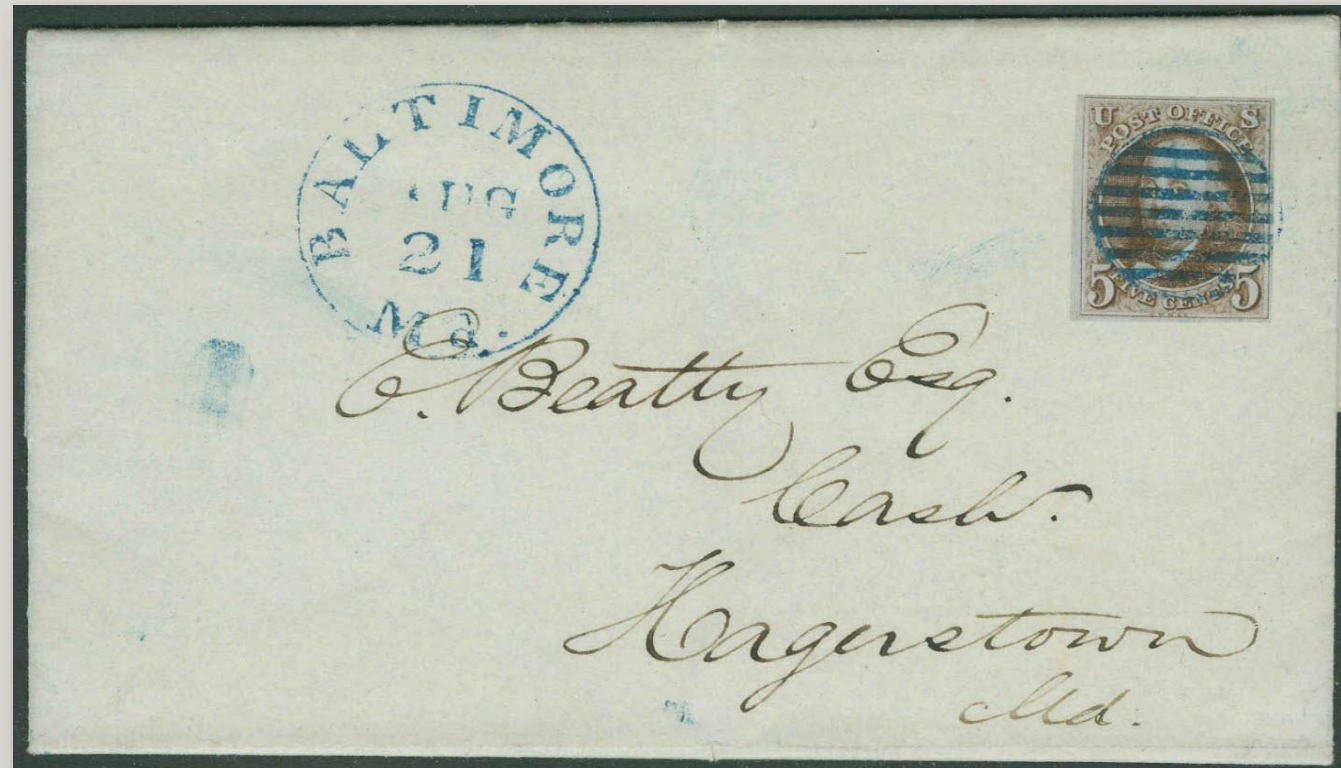 BALTIMORE
AUG
21
Md.
U S
POST OFFICE
5 FIVE CENTS 5
E. Beatty Esq.
Cash.
Hagerstown
Md.